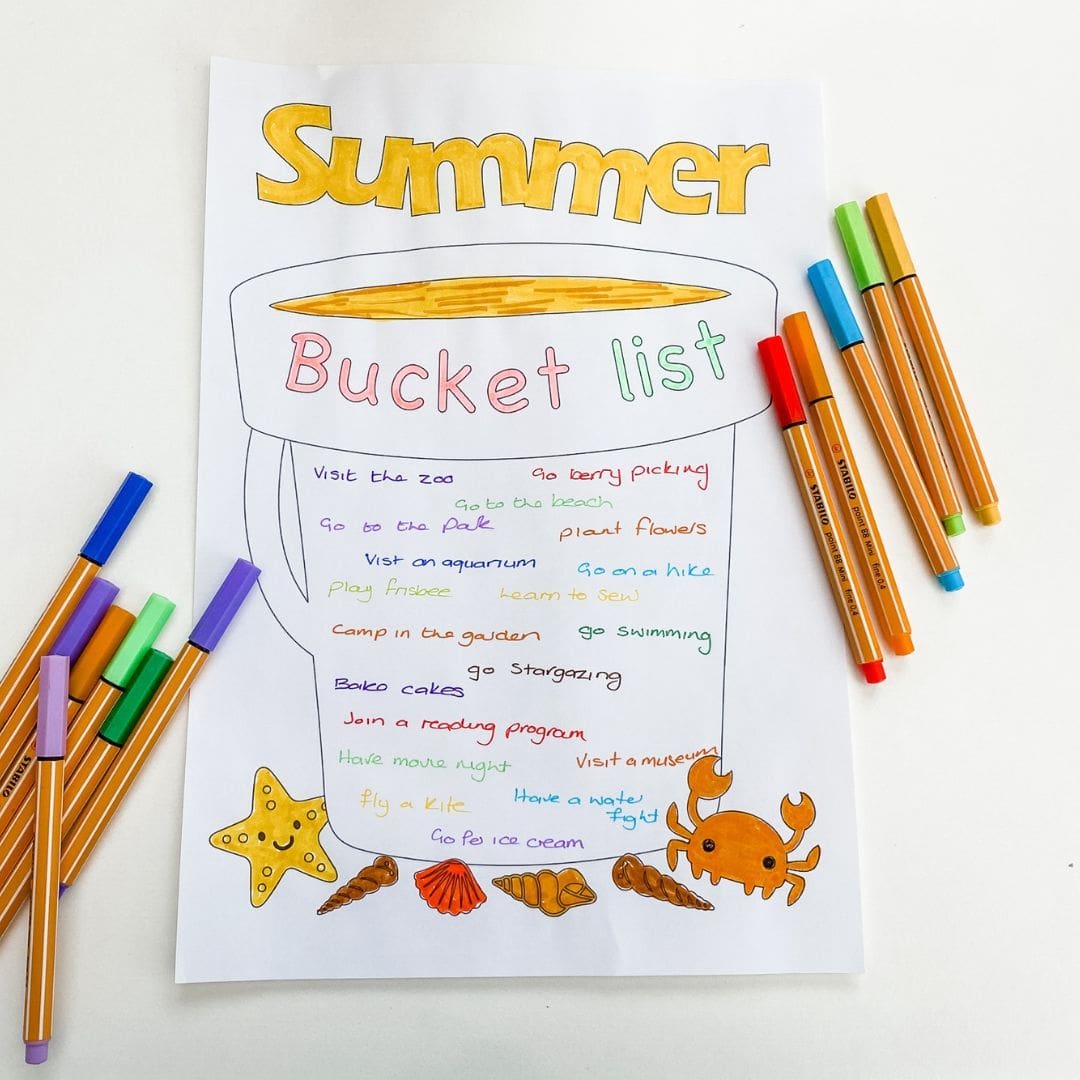 Summer
Bucket list
Visit the zoo
Go berry picking
Go to the beach
Go to the park
plant flowers
Visit an aquarium
Go on a hike
Play frisbee
Learn to sew
Camp in the garden
go swimming
go Stargazing
Bake cakes
Join a reading program
Have movie night
Visit a museum
fly a kite
Have a water
fight
Go for ice cream
STABILO point 88 Mini fine 0,4
STABILO point 88 Mini fine 0,4
STABILO